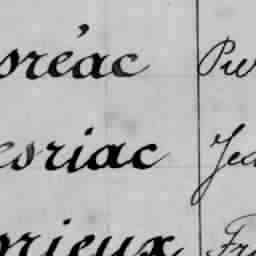 oréac Pie
esriac Jea
rieux Fr